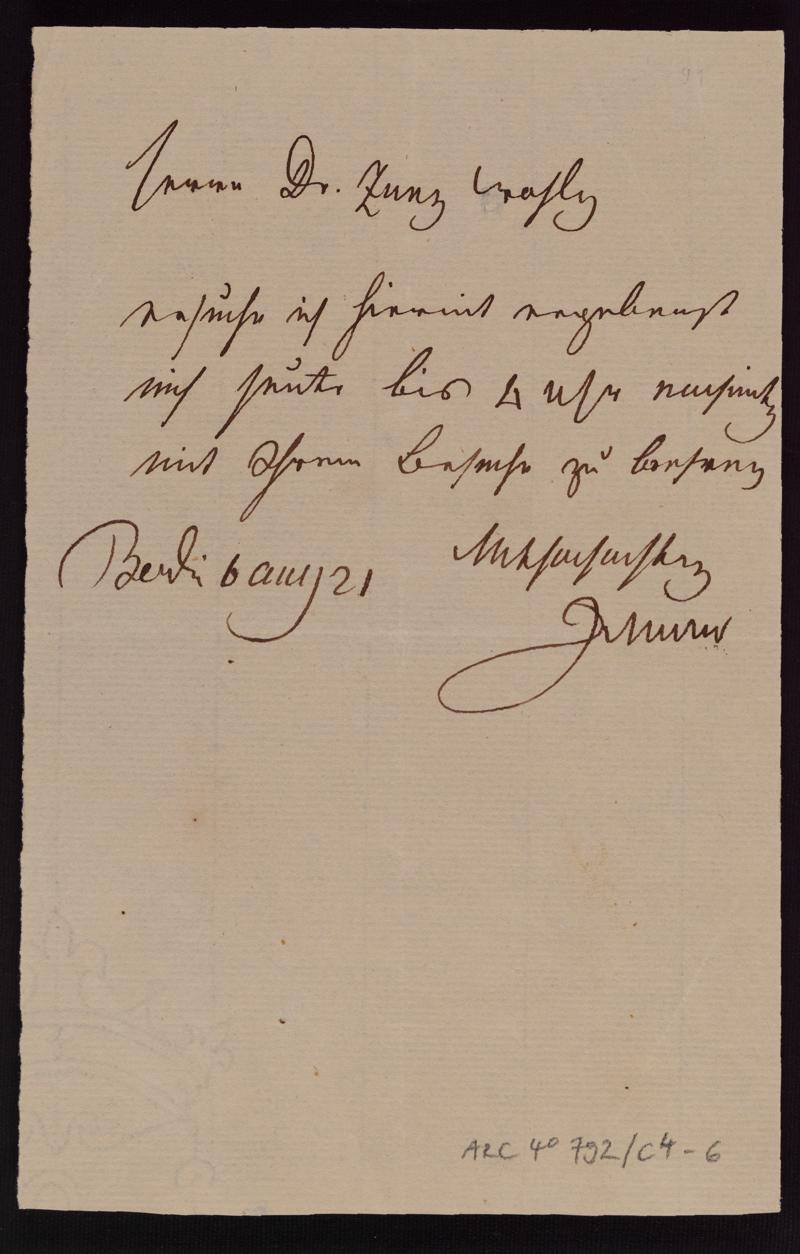 Herrn Dr. Zunz Wohlg
ersuche ich hiermit ergebenst
mich heute bis 4 Uhr nachmittg
mit Ihrem Besuche zu beehren
Berlin 6 aug 21
Hochachtungsvoll
ARC 4° 792/C4-6